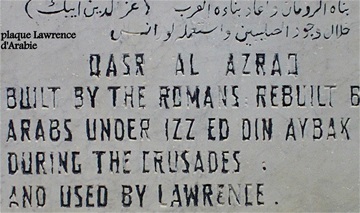 بناه الرومان وأعاد بناءه العرب (عز الدين ايبك)
خلال
plaque Lawrence
d'Arabie
QASR AL AZRAQ
BUILT BY THE ROMANS: REBUILT B
ARABS UNDER IZZ ED DIN AYBAK
DURING THE CRUSADES :
AND USED BY LAWRENCE .